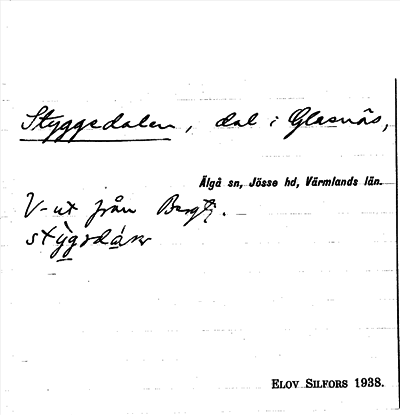 Styggedalen, dal i Glasnäs,
Älgå sn, Jösse hd, Värmlands län.
V-ut från
ELOV SILFORS 1938.